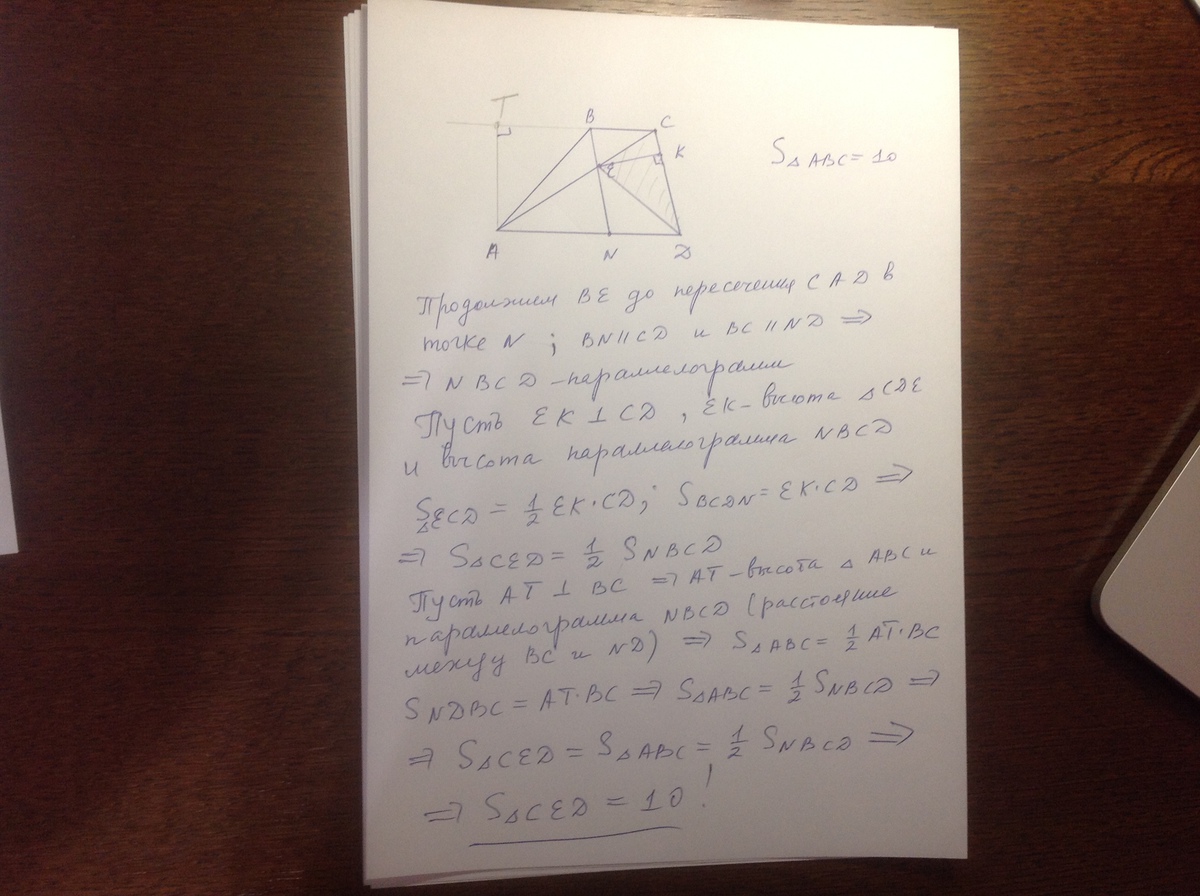 T
B
C
K
E
A
N
D
S△ABC = 10
Продолжим BE до пересечения с AD в
точке N ; BN∥CD и BC∥ND ⇒
⇒ NBCD – параллелограмм
Пусть EK ⊥ CD , EK – высота △CDE
и высота параллелограмма NBCD
S△ECD = 1/2 EK·CD; SBCDN = EK·CD ⇒
⇒ S△CED = 1/2 SNBCD
Пусть AT ⊥ BC ⇒ AT – высота △ABC и
параллелограмма NBCD (расстояние
между BC и ND) ⇒ S△ABC = 1/2 AT·BC
SNDBC = AT·BC ⇒ S△ABC = 1/2 SNBCD ⇒
⇒ S△CED = S△ABC = 1/2 SNBCD ⇒
⇒ S△CED = 10 !